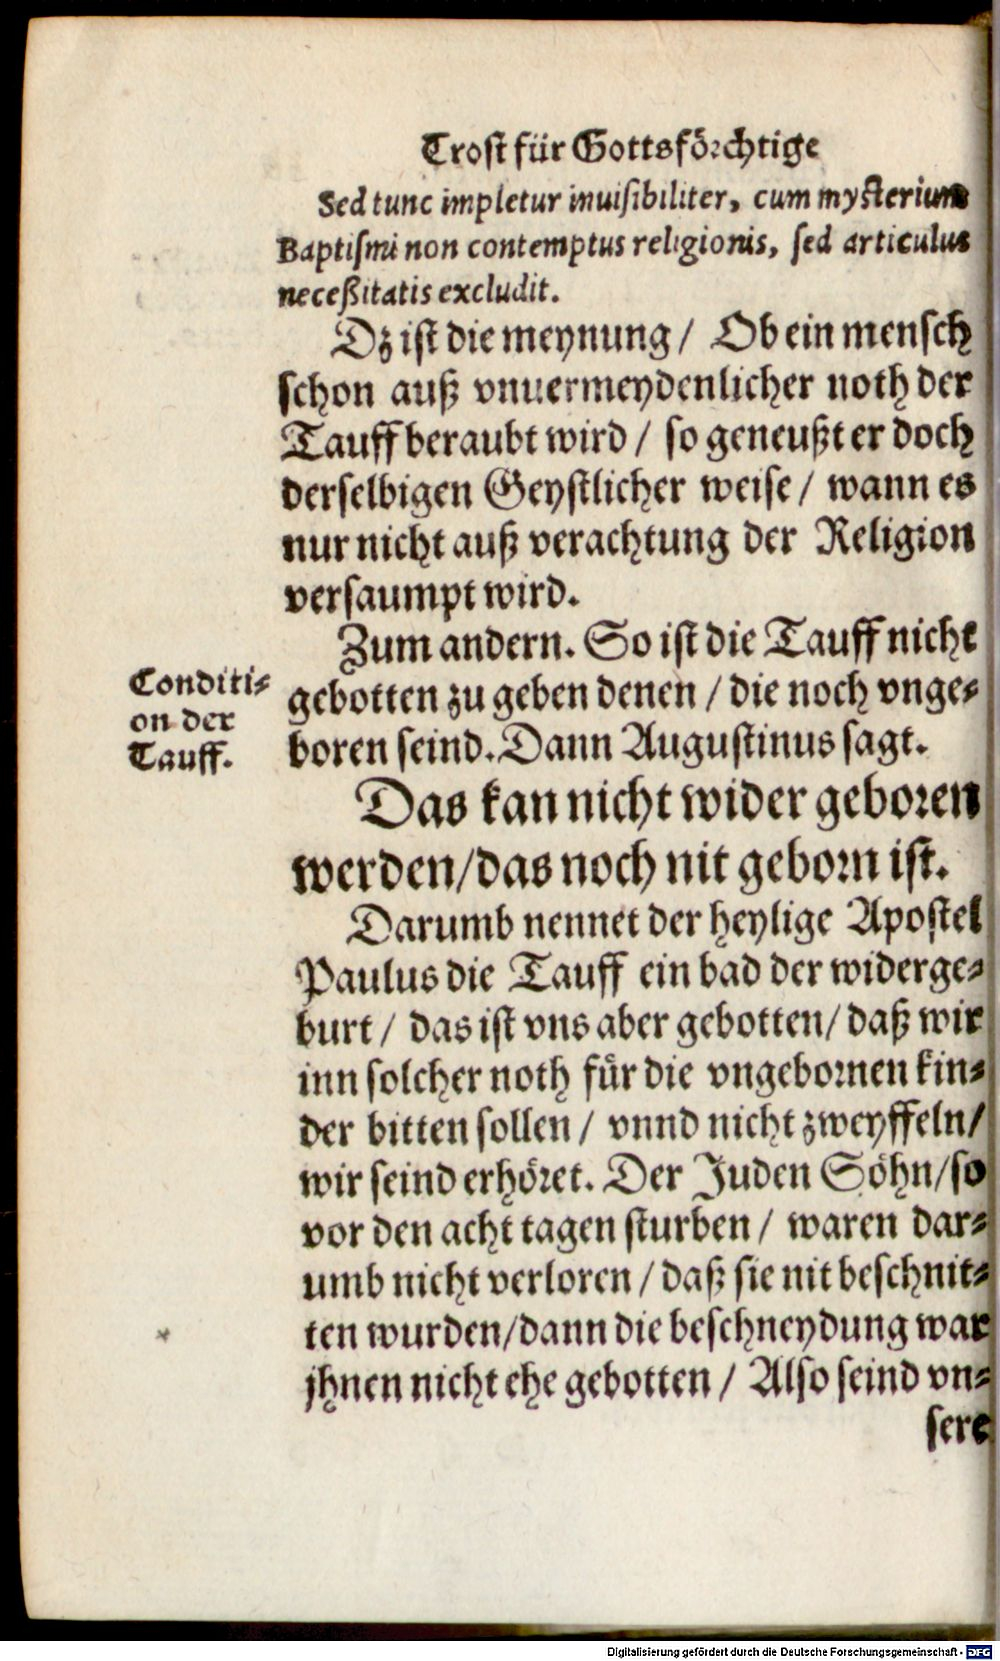 Trost für Gottsförchtige
Sed tunc impletur inuiſibiliter, cum myſterium
Baptiſmi non contemptus religionis, ſed articulus
neceßitatis excludit.
Dz iſt die meynung / Ob ein menſch
ſchon auß vnuermeydenlicher noth der
Tauff beraubt wird / ſo geneußt er doch
derſelbigen Geyſtlicher weiſe / wann es
nur nicht auß verachtung der Religion
verſaumpt wird.
Zum andern. So iſt die Tauff nicht
Conditi⸗
on der
Tauff.
gebotten zu geben denen / die noch vnge⸗
boren ſeind. Dann Auguſtinus ſagt.
Das kan nicht wider geboren
werden/das noch nit geborn iſt.
Darumb nennet der heylige Apoſtel
Paulus die Tauff ein bad der widerge⸗
burt / das iſt vns aber gebotten/ daß wir
inn ſolcher noth für die vngebornen kin⸗
der bitten ſollen / vnnd nicht zweyffeln/
wir ſeind erhöret. Der Juden Söhn/ſo
vor den acht tagen ſturben / waren dar⸗
umb nicht verloren / daß ſie nit beſchnit⸗
ten wurden/dann die beſchneydung war
jhnen nicht ehe gebotten / Alſo ſeind vn⸗
ſere
Digitalisierung gefördert durch die Deutsche Forschungsgemeinschaft - DFG